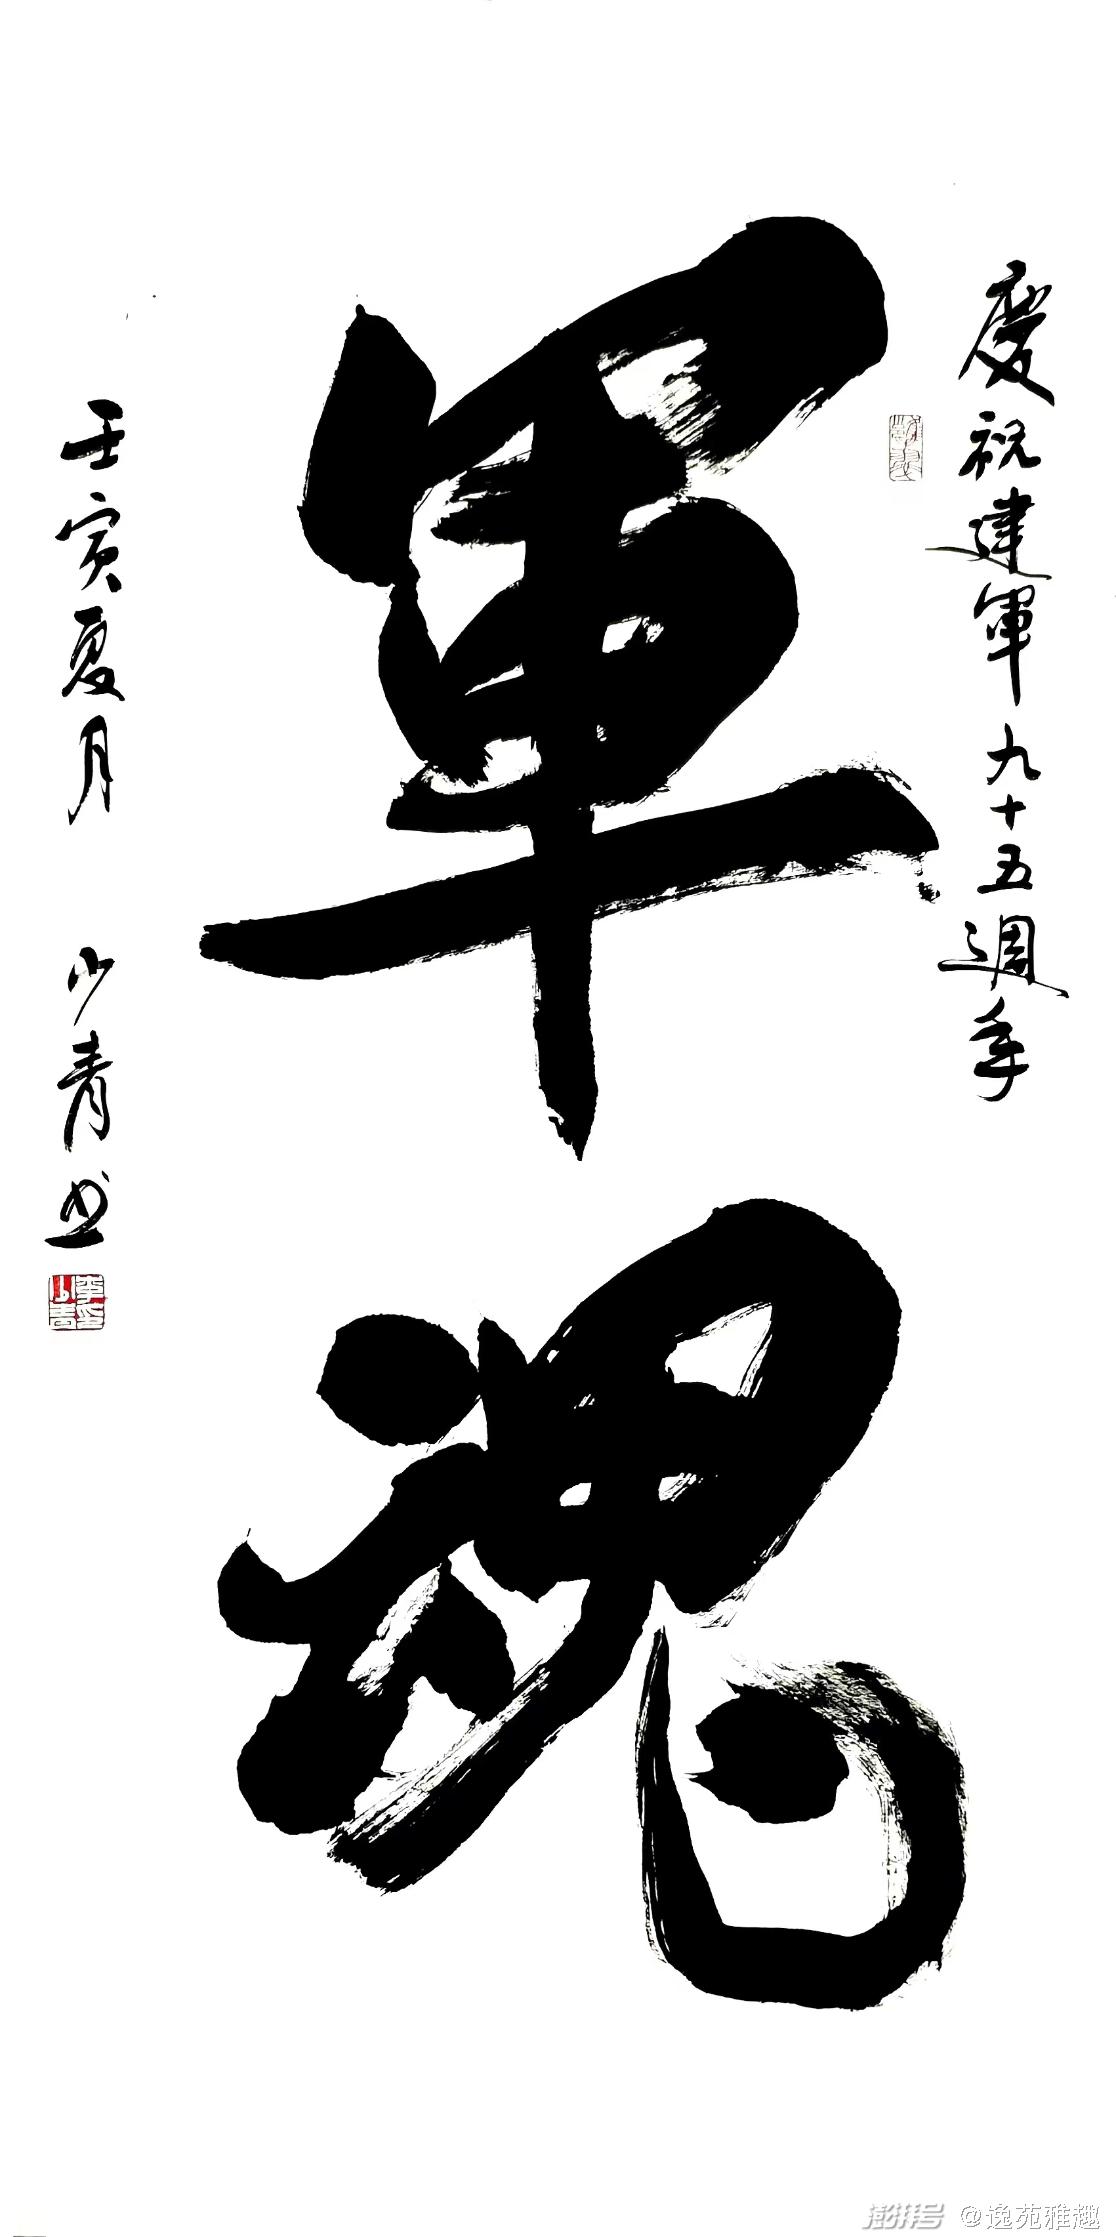 慶祝建軍九十五週年
軍魂
壬寅夏月 少青书
澎湃号 @逸苑雅趣